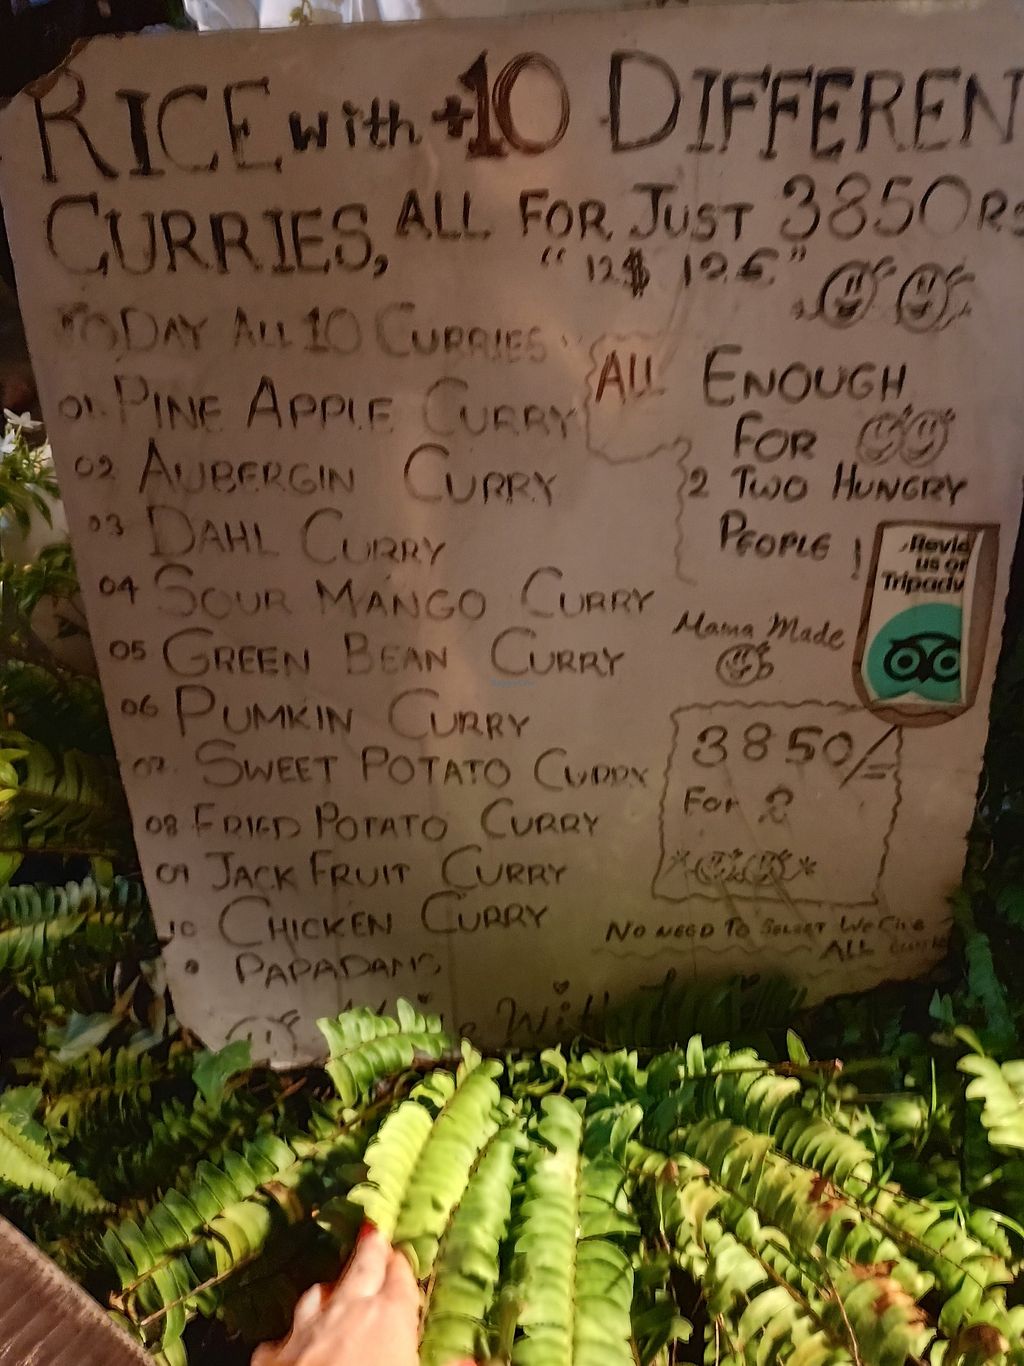 RICE with +10 DIFFEREN
CURRIES, ALL FOR JUST 3850RS
"12$ 12€"
TODAY ALL 10 CURRIES
01. PINE APPLE CURRY
02 AUBERGIN CURRY
03 DAHL CURRY
04 SOUR MANGO CURRY
05 GREEN BEAN CURRY
06 PUMKIN CURRY
07. SWEET POTATO CURRY
08 FRIED POTATO CURRY
09 JACK FRUIT CURRY
10 CHICKEN CURRY
PAPADAMS
ALL ENOUGH
FOR
2 TWO HUNGRY
PEOPLE !
Revie
us on
Tripadv
Mama Made
3850/=
For 2
NO NEED TO SELECT WE GIVE
ALL
With